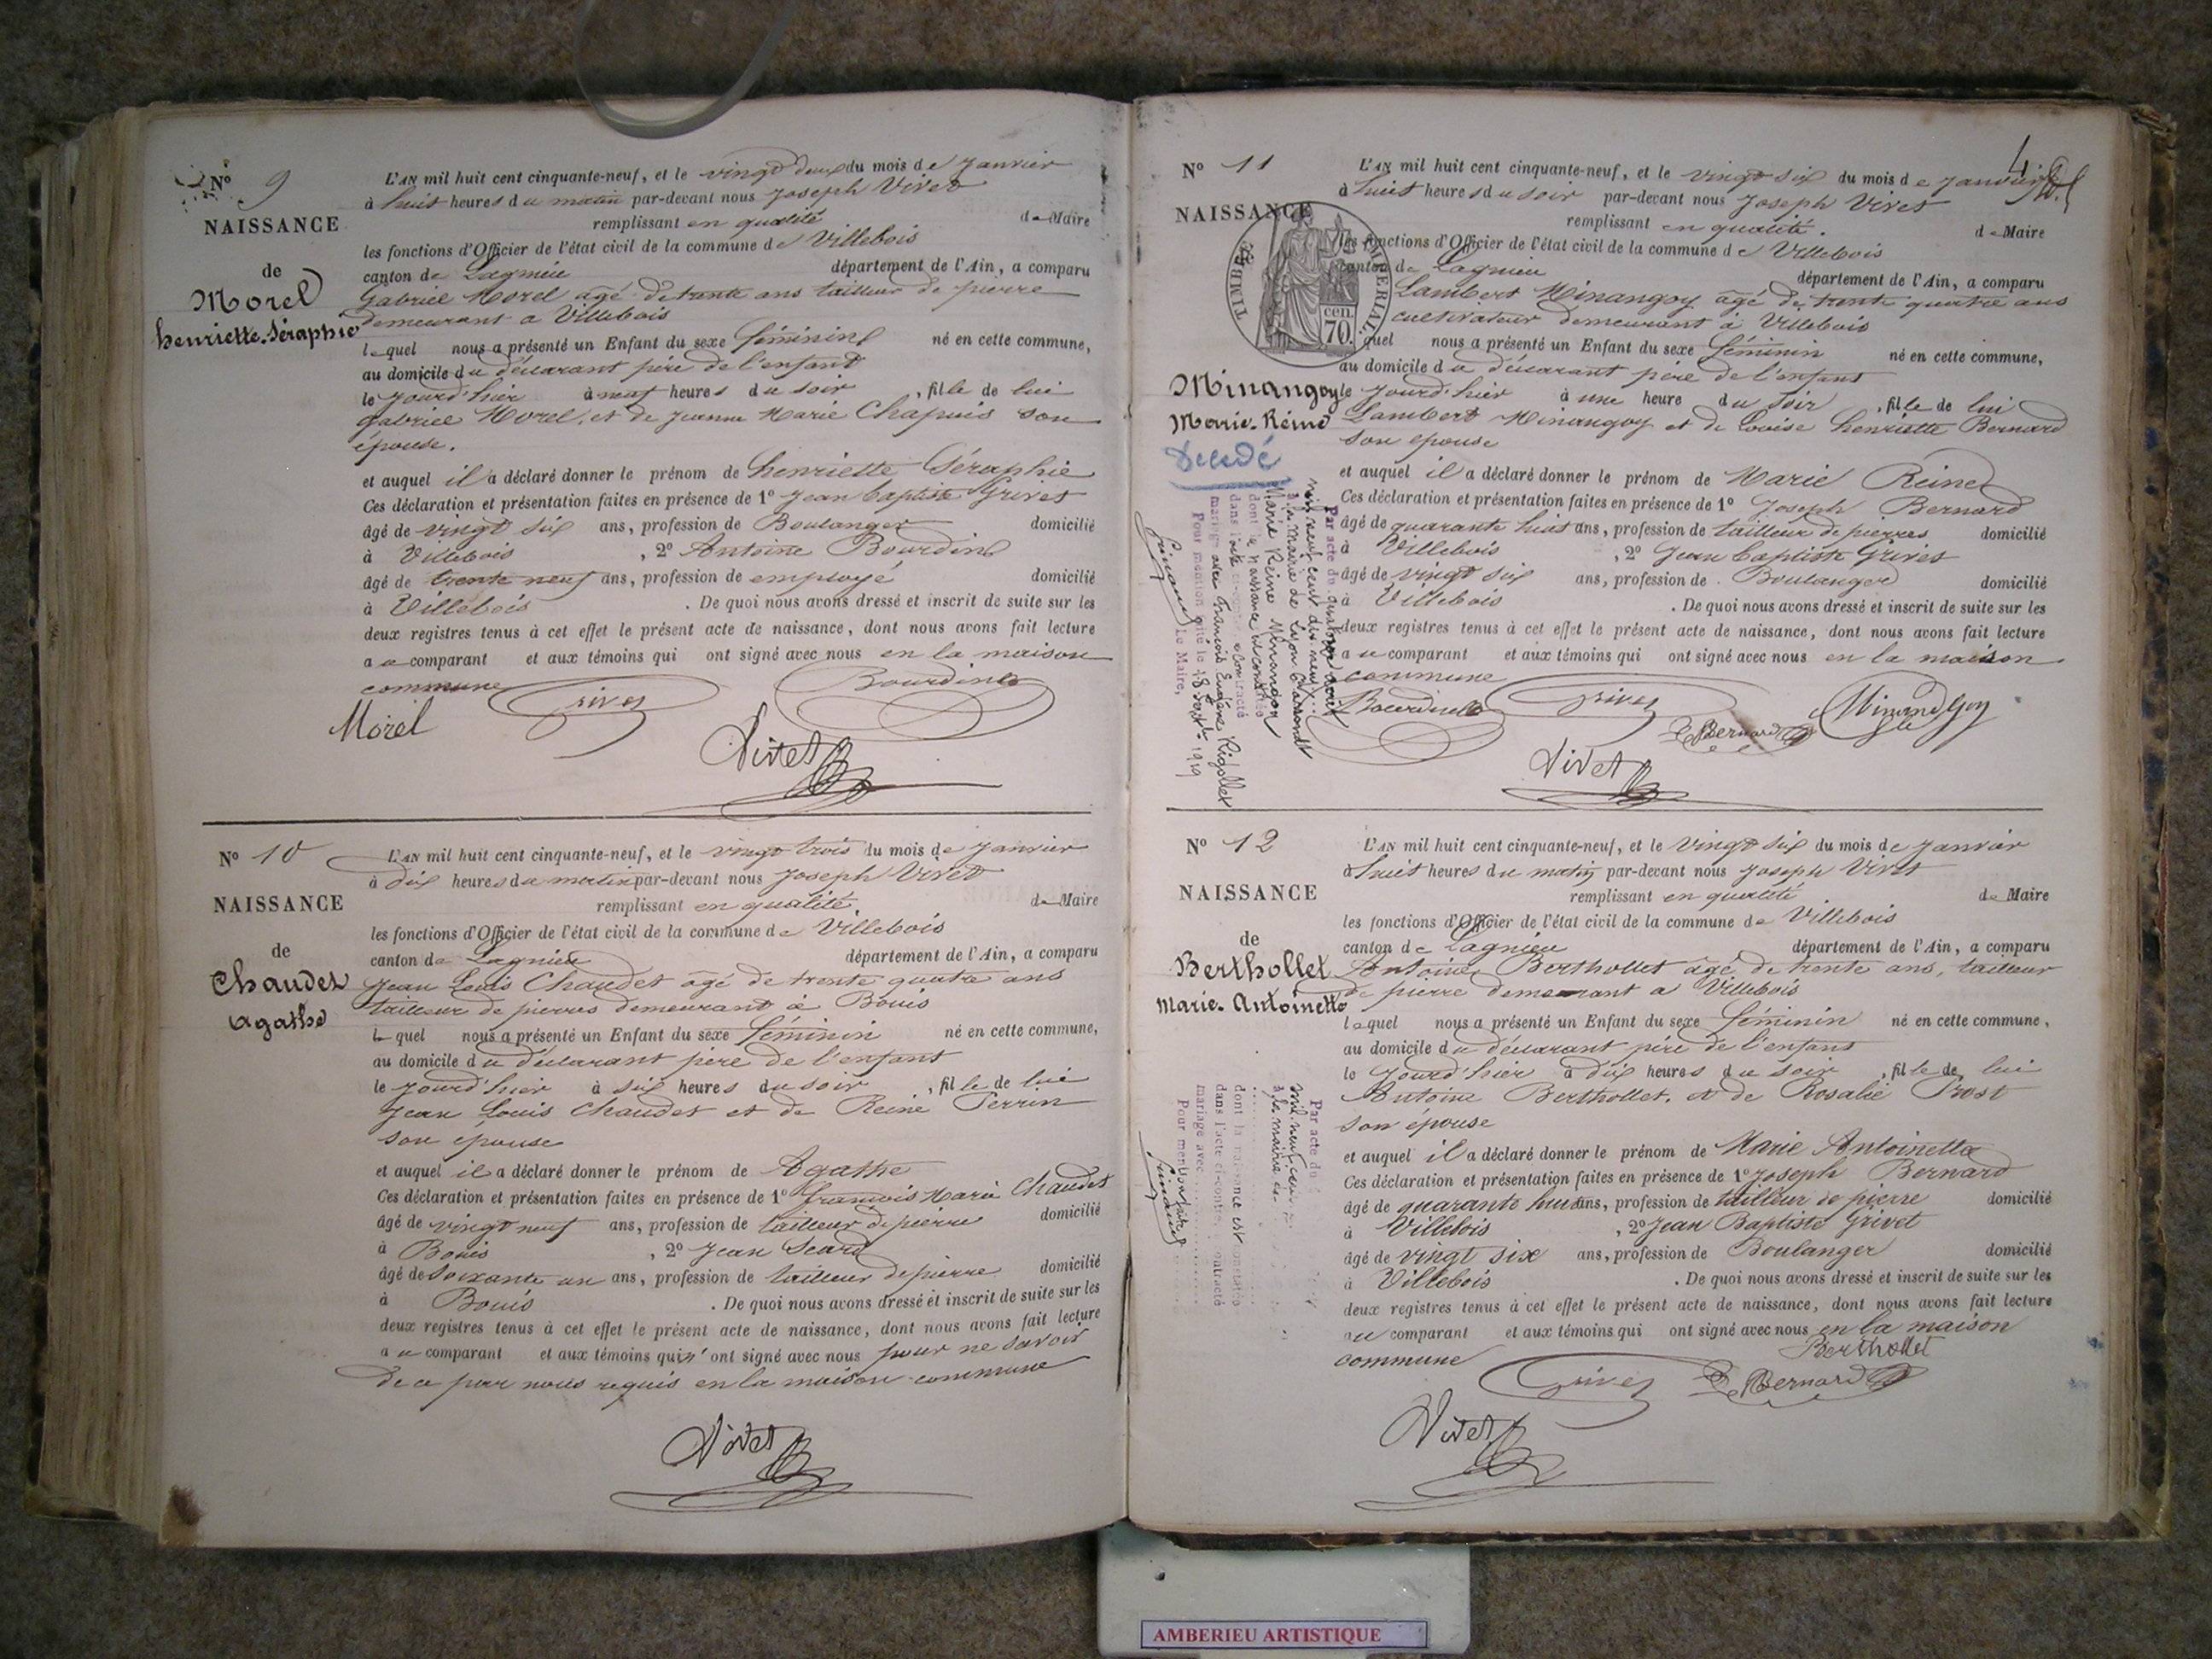 Nº 9
NAISSANCE
de
Morel
henriette-Séraphie
L'AN mil huit cent cinquante-neuf, et le vingt deux du mois de Janvier
à huit heures du matin par-devant nous Joseph Vivet
remplissant en qualité de Maire
les fonctions d'Officier de l'état civil de la commune de Villebois
canton de Lagnieu département de l'Ain, a comparu
Gabriel Morel âgé de trente ans tailleur de pierre
demeurant a Villebois
lequel nous a présenté un Enfant du sexe féminin né en cette commune,
au domicile du déclarant père de l'enfant
le jourd'hier à neuf heures du soir, fille de lui
Gabriel Morel, et de Jeanne Marie Chapuis son
épouse.
et auquel il a déclaré donner le prénom de henriette Séraphie
Ces déclaration et présentation faites en présence de 1º Jean Baptiste Grivet
âgé de vingt six ans, profession de Boulanger domicilié
à Villebois, 2º Antoine Bourdin
âgé de trente neuf ans, profession de employé domicilié
à Villebois. De quoi nous avons dressé et inscrit de suite sur les
deux registres tenus à cet effet le présent acte de naissance, dont nous avons fait lecture
au comparant et aux témoins qui ont signé avec nous en la maison
commune
Morel Grivet Bourdin
Vivet
Nº 10
NAISSANCE
de
Chaudet
Agathe
L'AN mil huit cent cinquante-neuf, et le vingt trois du mois de Janvier
à dix heures du matin par-devant nous Joseph Vivet
remplissant en qualité de Maire
les fonctions d'Officier de l'état civil de la commune de Villebois
canton de Lagnieu département de l'Ain, a comparu
Jean Louis Chaudet âgé de trente quatre ans
tailleur de pierres demeurant à Bouis
lequel nous a présenté un Enfant du sexe féminin né en cette commune,
au domicile du déclarant père de l'enfant
le jourd'hier à six heures du soir, fille de lui
Jean Louis Chaudet et de Reine Perrin
son épouse
et auquel il a déclaré donner le prénom de Agathe
Ces déclaration et présentation faites en présence de 1º François Marie Chaudet
âgé de vingt neuf ans, profession de tailleur de pierre domicilié
à Bouis, 2º Jean
âgé de soixante un ans, profession de tailleur de pierre domicilié
à Bouis. De quoi nous avons dressé et inscrit de suite sur les
deux registres tenus à cet effet le présent acte de naissance, dont nous avons fait lecture
au comparant et aux témoins qui n'ont signé avec nous pour ne savoir
de ce par nous requis en la maison commune
Vivet
Nº 11
NAISSANCE
TIMBRE IMPÉRIAL
70 cen.
Minangoy
Marie-Reine
Décédé
L'AN mil huit cent cinquante-neuf, et le vingt six du mois de Janvier
à huit heures du soir par-devant nous Joseph Vivet
remplissant en qualité. de Maire
les fonctions d'Officier de l'état civil de la commune de Villebois
canton de Lagnieu département de l'Ain, a comparu
Lambert Minangoy âgé de trente quatre ans
cultivateur demeurant à Villebois
quel nous a présenté un Enfant du sexe féminin né en cette commune,
au domicile du déclarant père de l'enfant
le jourd'hier à une heure du soir, fille de lui
Lambert Minangoy et de Louise henriette Bernard
son épouse
et auquel il a déclaré donner le prénom de Marie Reine
Ces déclaration et présentation faites en présence de 1º Joseph Bernard
âgé de quarante huit ans, profession de tailleur de pierres domicilié
à Villebois, 2º Jean Baptiste Grivet
âgé de vingt six ans, profession de Boulanger domicilié
à Villebois. De quoi nous avons dressé et inscrit de suite sur les
deux registres tenus à cet effet le présent acte de naissance, dont nous avons fait lecture
au comparant et aux témoins qui ont signé avec nous en la maison
commune
Bourdin Grivet Bernard Minandgoy
Vivet
Par acte du quinze
mil neuf cent dix neuf
à la mairie de Lyon
Marie Reine Minangoy
dont la naissance est constatée
dans l'acte ci-contre a contracté
mariage avec François Eugène Rigollet
Pour mention faite le 18 1919
Le Maire,
Nº 12
NAISSANCE
de
Berthollet
Marie-Antoinette
L'AN mil huit cent cinquante-neuf, et le vingt six du mois de Janvier
à huit heures du matin par-devant nous Joseph Vivet
remplissant en qualité de Maire
les fonctions d'Officier de l'état civil de la commune de Villebois
canton de Lagnieu département de l'Ain, a comparu
Antoine Berthollet âgé de trente ans, tailleur
de pierre demeurant a Villebois
lequel nous a présenté un Enfant du sexe féminin né en cette commune,
au domicile du déclarant père de l'enfant
le jourd'hier à dix heures du soir, fille de lui
Antoine Berthollet, et de Rosalie Prost
son épouse
et auquel il a déclaré donner le prénom de Marie Antoinette
Ces déclaration et présentation faites en présence de 1º Joseph Bernard
âgé de quarante huit ans, profession de tailleur de pierre domicilié
à Villebois, 2º Jean Baptiste Grivet
âgé de vingt six ans, profession de Boulanger domicilié
à Villebois. De quoi nous avons dressé et inscrit de suite sur les
deux registres tenus à cet effet le présent acte de naissance, dont nous avons fait lecture
au comparant et aux témoins qui ont signé avec nous en la maison
commune Berthollet
Grivet Bernard
Vivet
Par acte du
mil neuf cent
à la mairie de
dont la naissance est constatée
dans l'acte ci-contre a contracté
mariage avec
Pour mention
AMBERIEU ARTISTIQUE